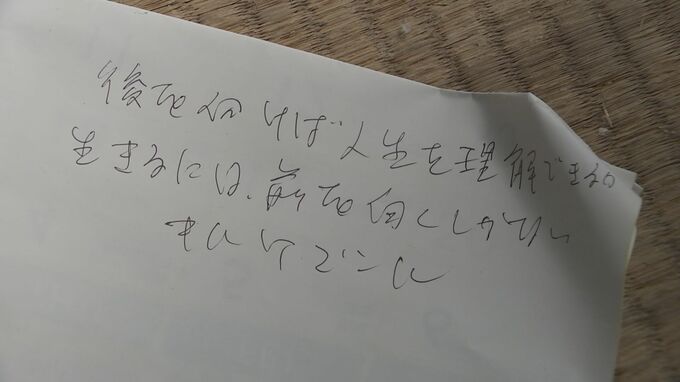 後を向けば人生を理解できるの
生きるには、前を向くしかない
キルケゴール